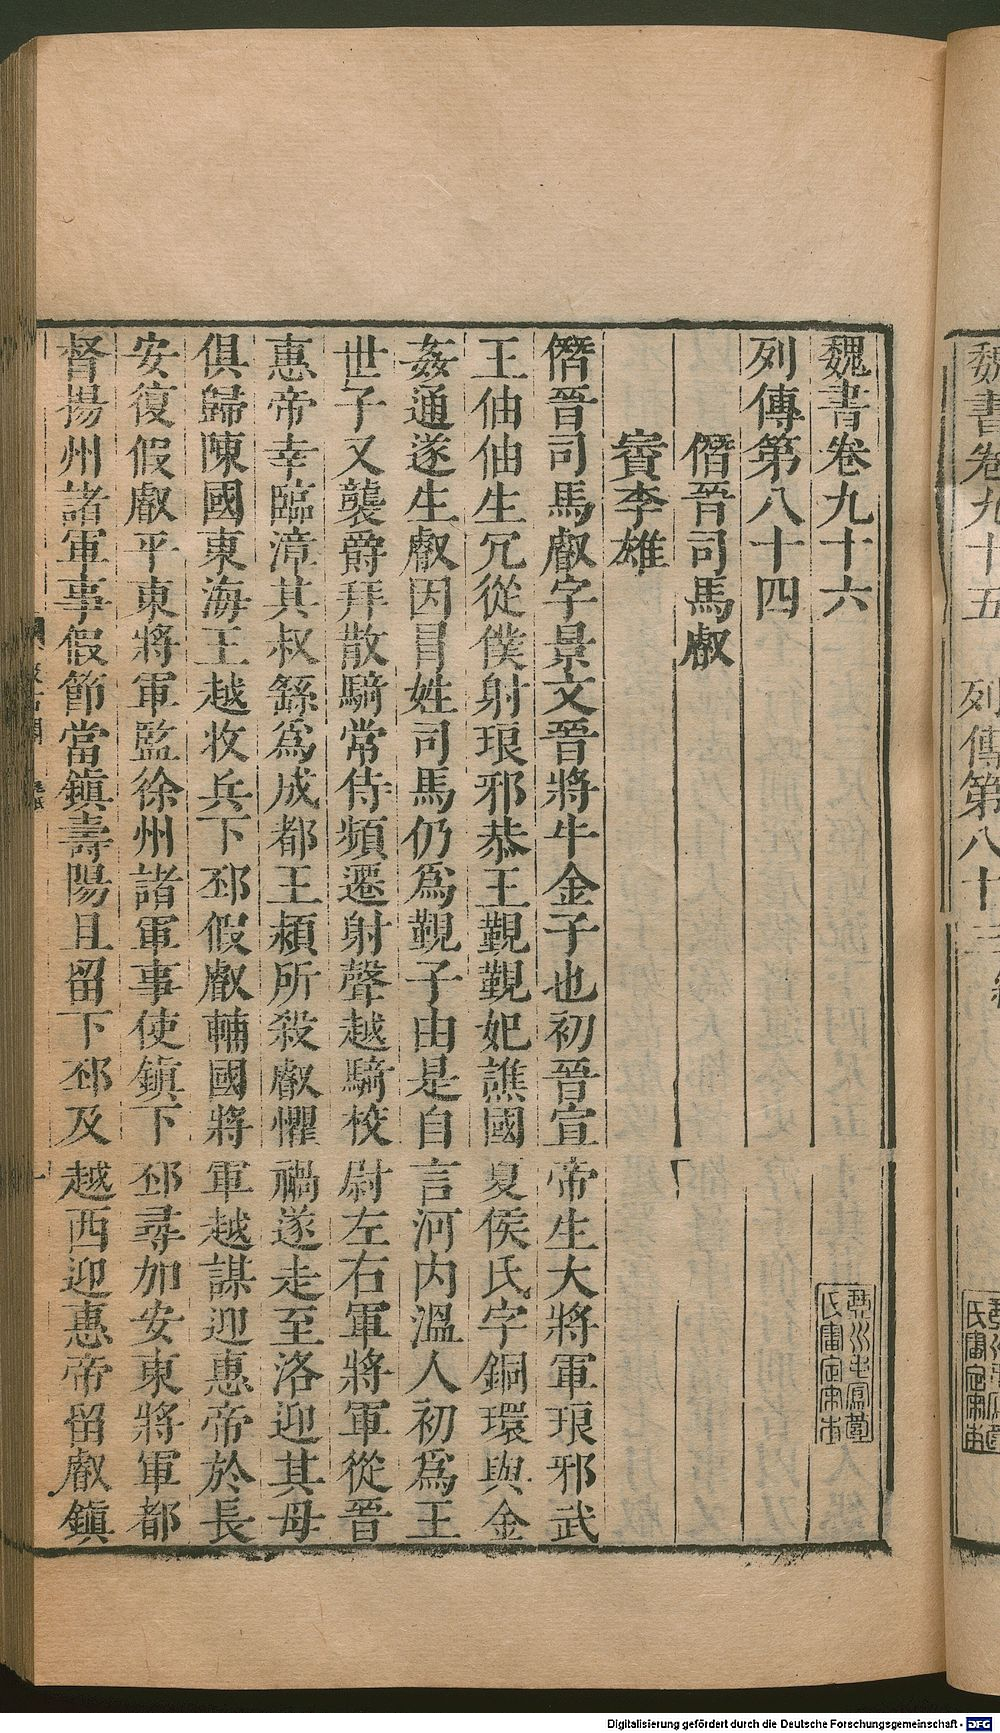 魏書卷九十六
列傳第八十四
僭晉司馬叡
賨李雄
僭晉司馬叡字景文晉將牛金子也初晉宣帝生大將軍琅邪武
王伷伷生冗從僕射琅邪恭王覲覲妃譙國夏侯氏字銅環與金
姦通遂生叡因冒姓司馬仍爲覲子由是自言河内溫人初爲王
世子又襲爵拜散騎常侍頻遷射聲越騎校尉左右軍將軍從晉
惠帝幸臨漳其叔繇爲成都王穎所殺叡懼禍遂走至洛迎其母
俱歸陳國東海王越收兵下邳假叡輔國將軍越謀迎惠帝於長
安復假叡平東將軍監徐州諸軍事使鎭下邳尋加安東將軍都
督揚州諸軍事假節當鎭壽陽且留下邳及越西迎惠帝留叡鎭
魏書卷九十五 列傳第八十三
Digitalisierung gefördert durch die Deutsche Forschungsgemeinschaft - DFG